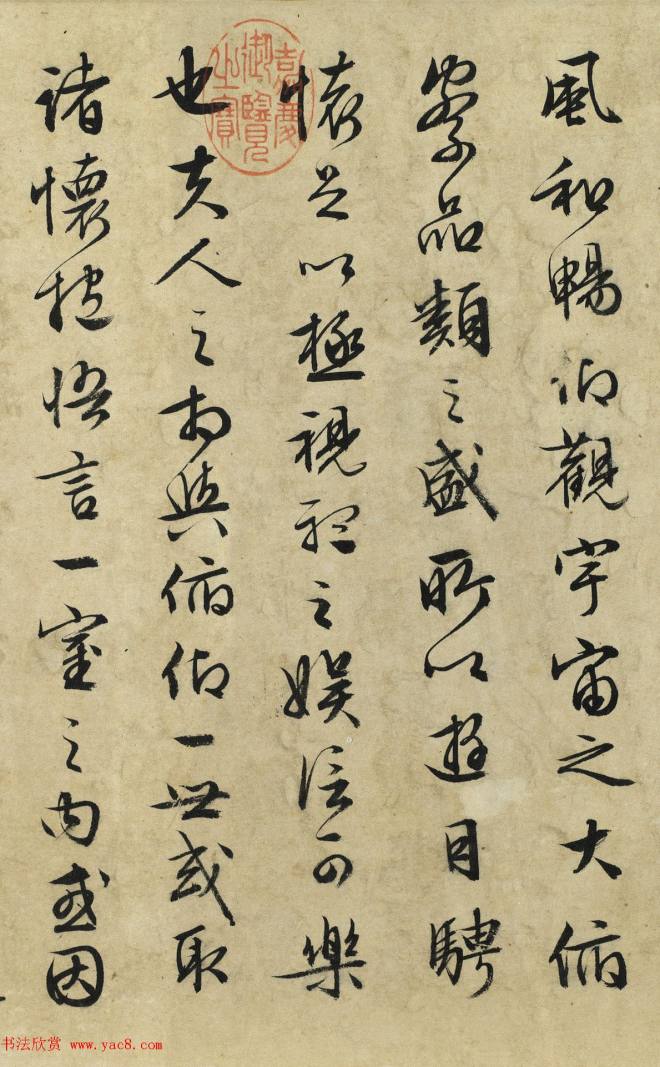 風和暢仰觀宇宙之大俯
察品類之盛所以遊目騁
懷足以極視聽之娛信可樂
也夫人之相與俯仰一世或取
諸懷抱悟言一室之內或因
嘉慶
御覽
之寶
书法欣赏 www.yac8.com